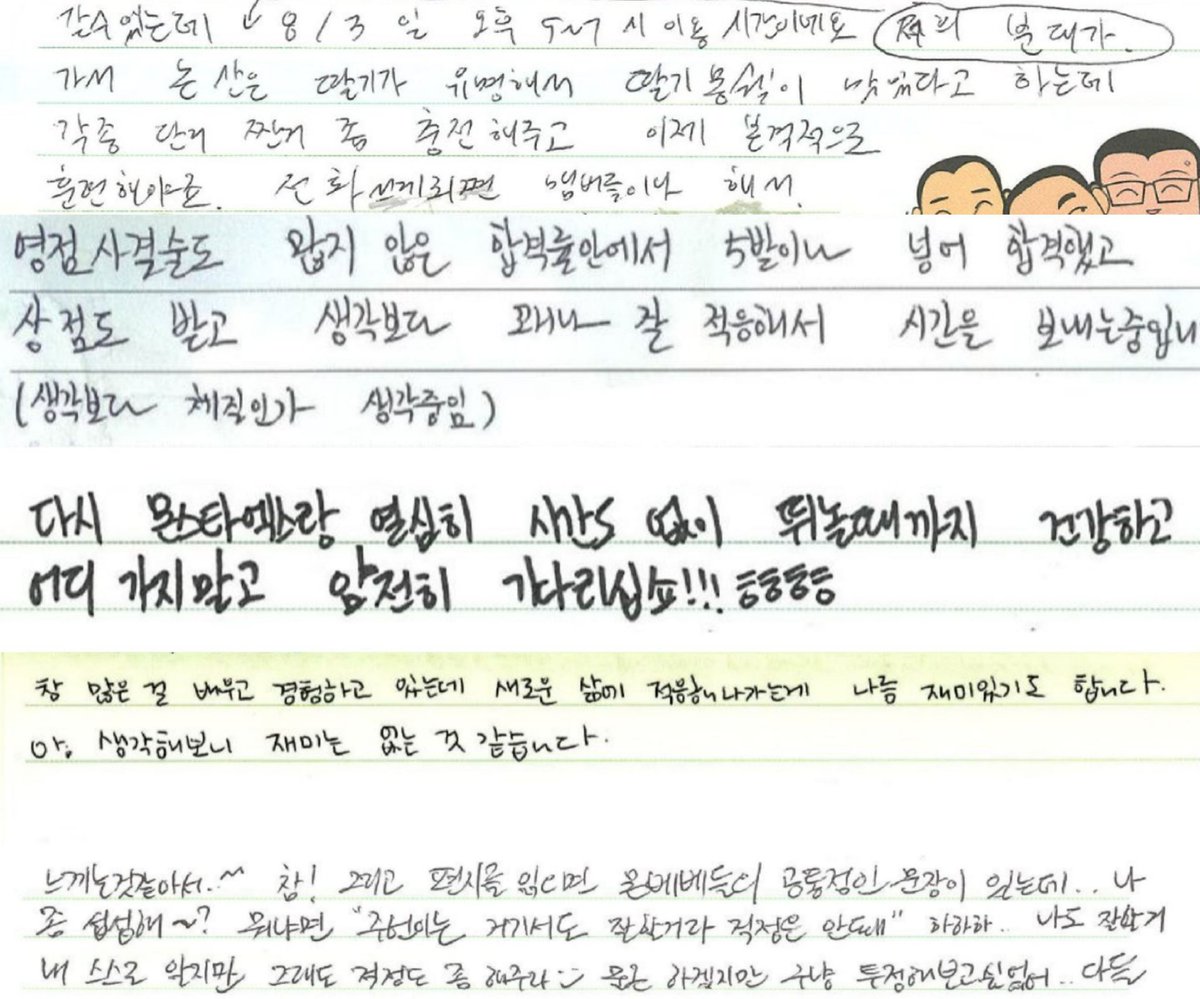 갈수있는데 ↓ 8/3 일 오후 5~7 시 이용 시간이네요 저희 분대가.
가서 논산은 딸기가 유명해서 딸기몽쉘이 맛있다고 하는데
각종 단거 짠거 좀 충전해주고 이제 본격적으로
훈련해야죠. 전화 쓰게되면 멤버들이나 해서
영점사격술도 많지 않은 합격률안에서 5발이나 넣어 합격했고
상점도 받고 생각보다 꽤나 잘 적응해서 시간을 보내는중입니
(생각보다 체질인가 생각중임)
다시 몬스타엑스랑 열심히 시간 없이 뛰놀때까지 건강하고
어디 가지말고 얌전히 기다리십쇼!!! ㅎㅎㅎㅎ
참 많은 걸 배우고 경험하고 있는데 새로운 삶에 적응해나가는게 나름 재미있기도 합니다.
아, 생각해보니 재미는 없는 것 같습니다.
느끼는것같아서..^^ 참! 그리고 편지를 읽으면 몬베베들의 공통적인 문장이 있는데.. 나
좀 섭섭해~? 뭐냐면 "주헌이는 거기서도 잘할거라 걱정은 안돼" 하하하.. 나도 잘할거
내 스스로 알지만 그래도 걱정도 좀 해주라 :) 물론 하겠지만 그냥 투정해보고싶었어.. 다들